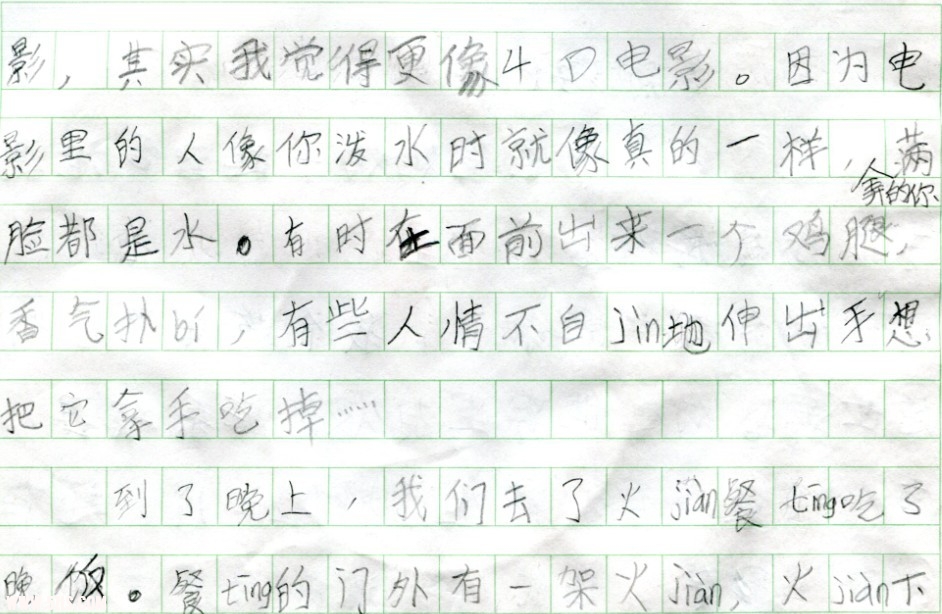 影，其实我觉得更像4D电影。因为电
影里的人像你泼水时就像真的一样，满
的你
脸都是水。有时在面前出来一个鸡腿，
香气扑bí，有些人情不自jin地伸出手想
把它拿手吃掉……
到了晚上，我们去了火jiàn餐tīng吃了
晚饭。餐tīng的门外有一架火jiàn，火jiàn下